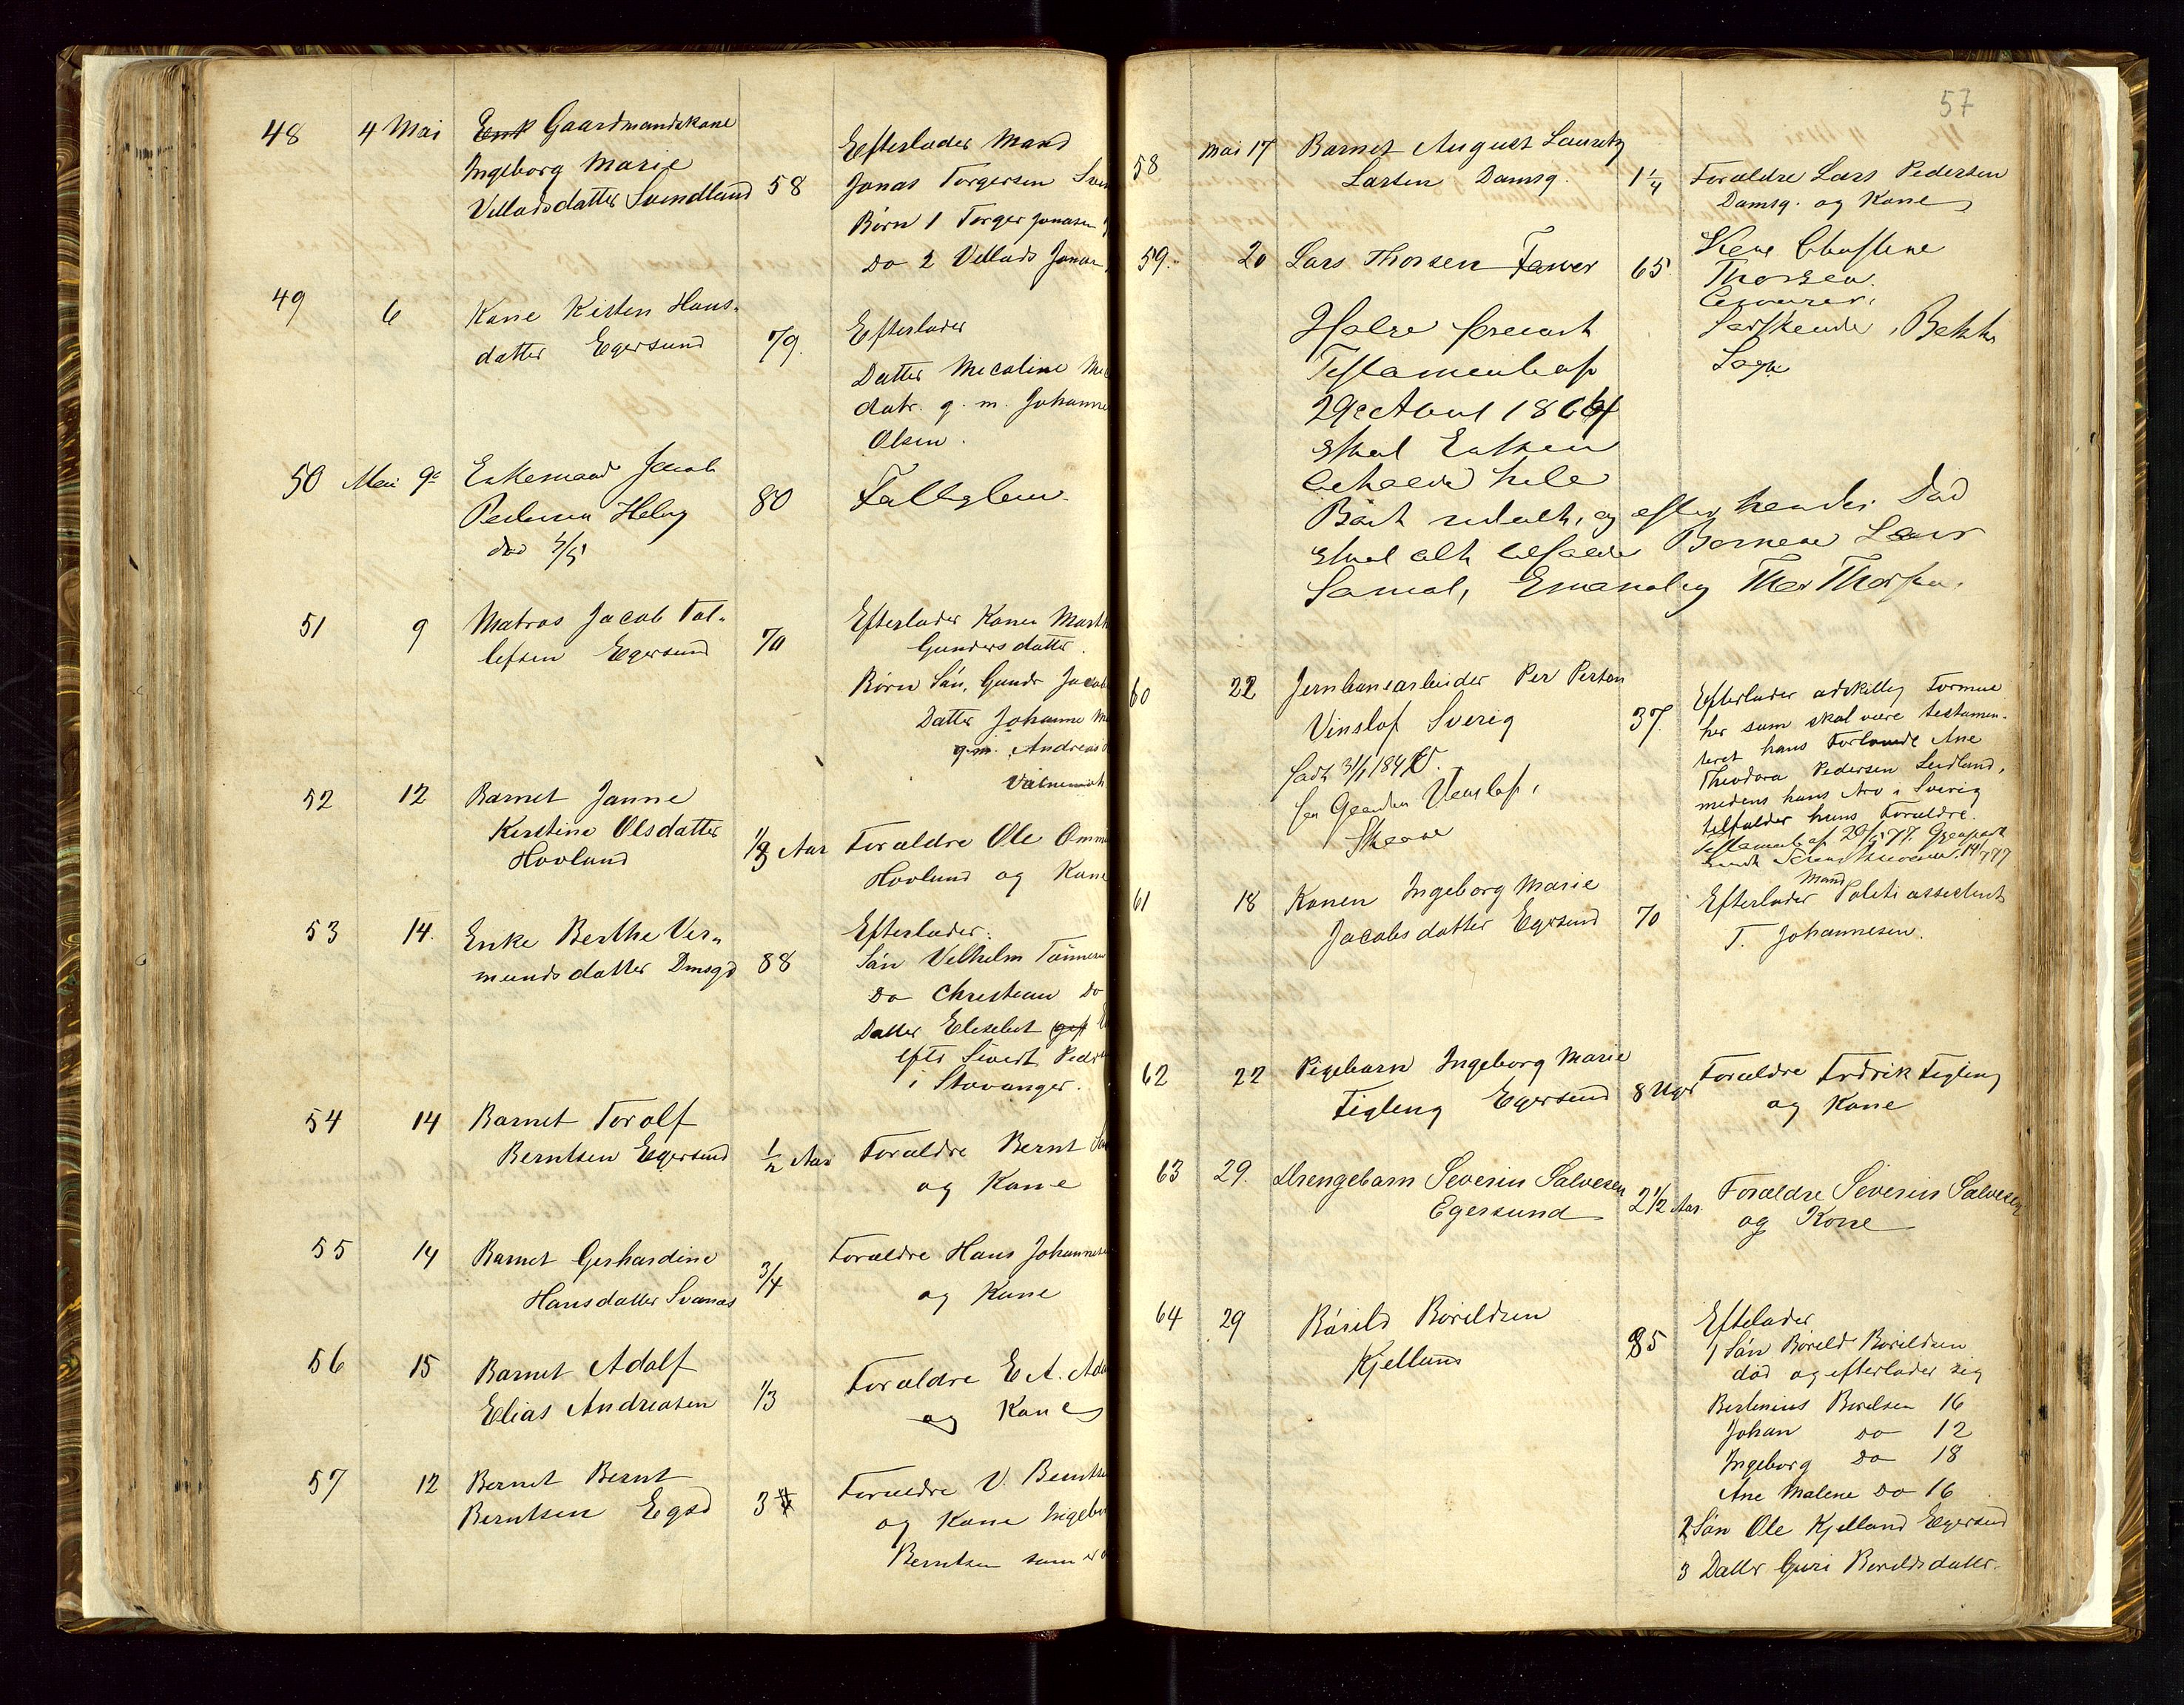 48 4 Mai Enk Gaardmandskone
Ingeborg Marie
Velladsdatter Svindland 58
Efterlader Mand
Jonas Torgersen
Børn 1 Torger Jonasen
Do 2 Vellads Jonas
49 6 Kone Kisten Hans-
datter Egersund 79.
Efterlader
Datter Mecaline
datr. g. m. Johanne
Olsen.
50 Mai 9e Enkemand Jacob
Pedersen Heley 80
død 4/5
Falleslem
51 9 Matros Jacob Tol-
lefsen Egersund 70
Efterlader Konen Marth
Gundersdatter.
Børn Sön, Gundr Jacob
Datter Johanne
g.m. Andreas
52 12 Barnet Janne
Kirstine Olsdatter
Hovland 1/3 Aar
Forældre Ole Omm
Hovland og Kone
53 14. Enke Berthe Ver-
mundsdatter Dmsgd 88
Efterlader:
Sön Velhelm Tönnesen
Do Christian Do
Datter Eliselut gift
efter Sivert Peders
i Stavanger.
54 14 Barnet Torolf
Berntsen Egersund 1/2 Aar
Forældre Bernt
og Kone
55 14 Barnet Gerhardine
Hansdatter Svanæs 3/4
Forældre Hans Johannesen
og Kone
56 15 Barnet Adolf
Elias Andreasen 1/3
Forældre E A. Ada
og Kone
57 12 Bernet Bernt
Berntsen Egsd 3
Forældre V. Berntse
og Kone Ingebor
Berntsen som er
57
58 Mai 17 Barnet August Lauritz
Larsen Damsg. 1 1/4
Forældre Lars Pedersen
Damsg. og Kone
59. 20 Lars Thorsen 65.
Thorsen.
Testamente af
29e April 1864
Skal Enken
beholde hele
Boet udelt, og efter hendes Död
skal alt tilfalde Börnene Lars
Samal, Emanal og Thor Thorsen.
60 22 Jernbanearbeider Per Person
Vinslof Sverig 37.
Efterlader adskillig Formue
her som skal være testamen-
teret hans Forlovede Ane
Theodora Pedersen Leidland,
medens hans Arv i Sverig
tilfalder hans Forældre.
61 18 Konen Ingeborg Marie
Jacobsdatter Egersund 70
Mand
Efterlader Politi assestent
T. Johannesen.
62 22 Pigebarn Ingeborg Marie
Figling Egersund 8 Uger
Forældre Fredrik Figling
og Kone
63 29. Drengebarn Severin Salvesen
Egersund 2 1/2 Aar.
Forældre Severin Salvesen
og Kone
64 29 Börild Börildsen
Kjelland 85
Eftelader
1 Sön Börild Börildsen
död og efterlader sig
Bertinius Börelsen 16
Johan do 12
Ingeborg Do 18
Ane Malene Do 16
2 Sön Ole Kjelland Egersund
3 Datter Guri Borildsdatter.